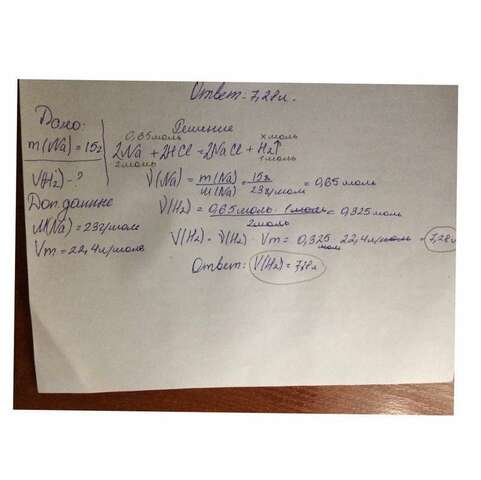 Ответ: 7,28 л.
Дано:
m(Na) = 15г
V(H2) - ?
Доп. данные
M(Na) = 23г/моль
Vm = 22,4л/моль
Решение
0,65моль х моль
2Na + 2HCl = 2NaCl + H2↑
2моль 1моль
ν(Na) = m(Na)/M(Na) = 15г/23г/моль = 0,65 моль
ν(H2) = 0,65моль · 1моль/2моль = 0,325 моль
V(H2) = ν(H2) · Vm = 0,325 моль · 22,4л/моль = 7,28л
Ответ: V(H2) = 7,28 л